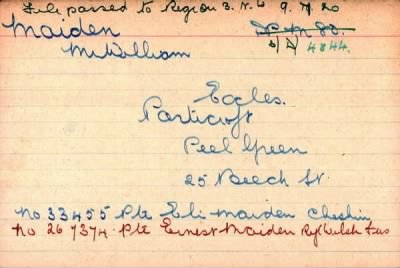 File passed to Region 3. N.W 9.7.20
Maiden
Mr William
B/N 4844.
Eccles.
Patricroft
Peel Green
25 Beech St.
No 33455 Pte Eli Maiden Cheshire
No 267374. Pte Ernest Maiden Ryl Welsh Fus